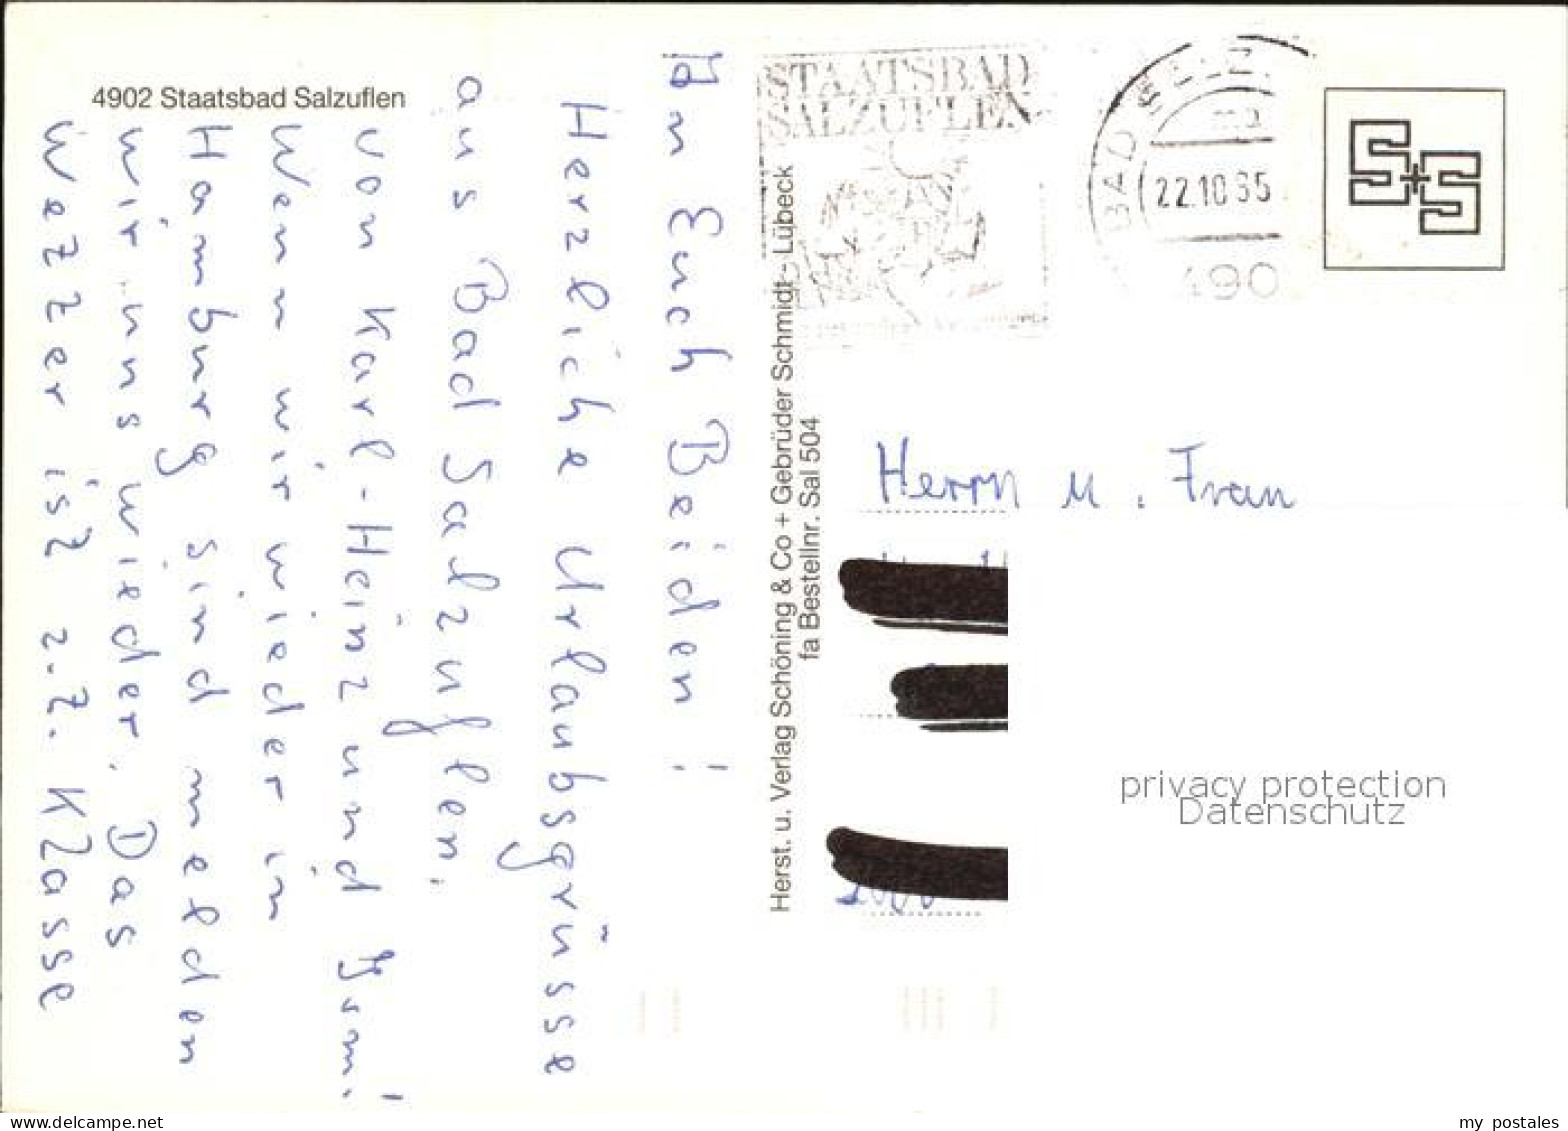 4902 Staatsbad Salzuflen
An Euch Beiden!
Herzliche Urlaubsgrüsse
aus Bad Salzuflen.
von Karl-Heinz und
Wenn wir wieder in
Hamburg sind melden
wir uns wieder. Das
Wezzer ist z.Z. Klasse
Herst. u. Verlag Schöning & Co + Gebrüder Schmidt - Lübeck
fa Bestellnr. Sal 504
STAATSBAD
SALZUFLEN
BAD SALZ
22.10.85
490
S+S
Herrn u. Frau
privacy protection
Datenschutz
www.delcampe.net
my postales